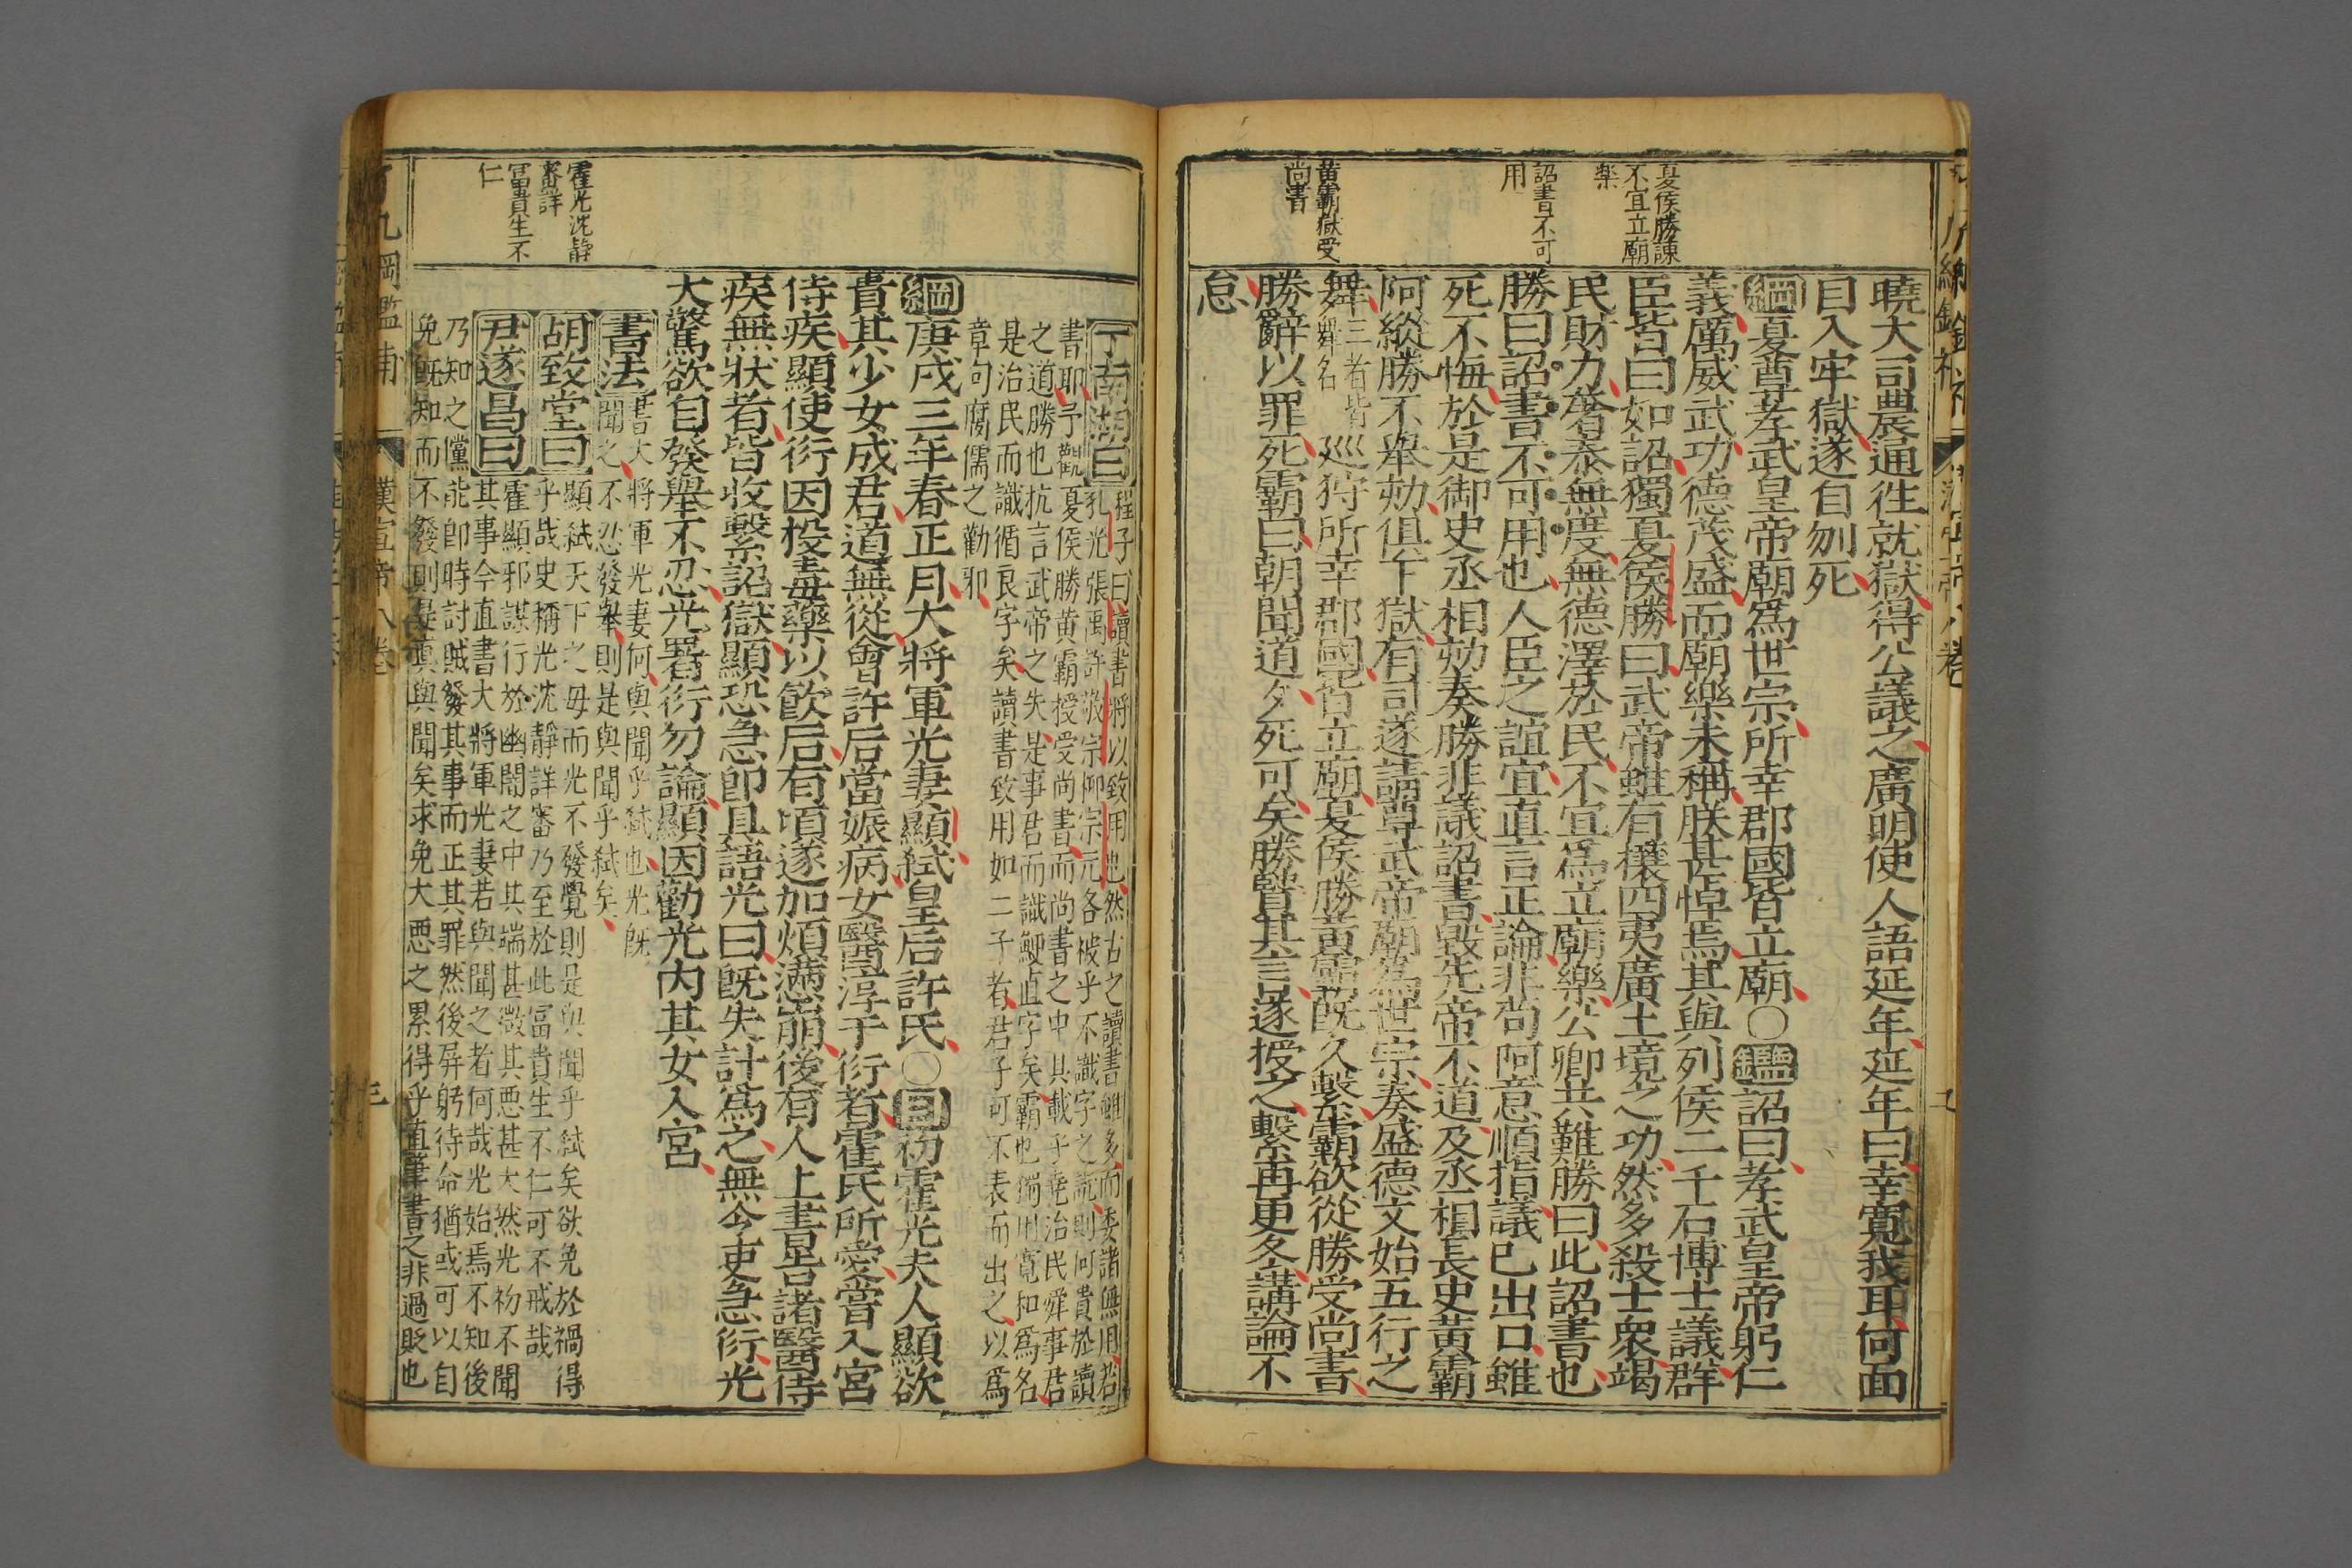 夏侯勝諫
不宜立廟
樂
詔書不可
用
黄霸獄受
尚書
曉大司農通徃就獄得公議之廣明使人語延年延年曰幸寬我耳何面
目入牢獄遂自刎死
綱夏尊孝武皇帝廟爲世宗所幸郡國皆立廟○鑑詔曰孝武皇帝躬仁
義厲威武功德茂盛而廟樂未稱朕甚悼焉其與列侯二千石博士議群
臣皆曰如詔獨夏侯勝曰武帝雖有攘四夷廣土境之功然多殺士衆竭
民財力奢泰無度無德澤於民不宜爲立廟樂公卿共難勝曰此詔書也
勝曰詔書不可用也人臣之誼宜直言正論非苟阿意順指議已出口雖
死不悔於是御史丞相劾奏勝非議詔書毀先帝不道及丞相長史黄霸
阿縱勝不舉劾俱下獄有司遂請尊武帝廟爲世宗奏盛德文始五行之
舞三者皆舞名巡狩所幸郡國皆立廟夏侯勝黄霸既久繫霸欲從勝受尚書
勝辭以罪死霸曰朝聞道夕死可矣勝賢其言遂授之繫再更冬講論不
怠
霍光沈靜
審詳
冨貴生不
仁
丁南湖曰程子曰讀書將以致用也然古之讀書雖多而委諸無用者
孔光張禹許敬宗柳宗元各被乎不識字之譏則何貴於讀
書耶予觀夏侯勝黄霸授受尚書而尚書之中其載予堯治民舜事君
之道勝也抗言武帝之失是事君而識鯁直字矣霸也獨用寬和爲名
是治民而識循良字矣讀書致用如二子者君子可不表而出之以爲
章句腐儒之勸耶
綱庚戌三年春正月大將軍光妻顯弑皇后許氏○目初霍光夫人顯欲
貴其少女成君道無從會許后當娠病女醫淳于衍者霍氏所愛嘗入宮
侍疾顯使衍因投毒藥以飮后有頃遂加煩懣崩後有人上書告諸醫侍
疾無狀者皆收繫詔獄顯恐急卽具語光曰旣失計爲之無令吏急衍光
大驚欲自發舉不忍光署衍勿論顯因勸光内其女入宮
書法書大將軍光妻何與聞乎弑也光旣
聞之不忍發舉則是與聞乎弑矣
胡致堂曰顯弑天下之母而光不發覺則是與聞乎弑矣欲免於禍得
乎哉史稱光沈靜詳審乃至於此冨貴生不仁可不戒哉
尹遂昌曰霍顯邪謀行於幽闇之中其端甚微其惡甚大然光初不聞
其事今直書大將軍光妻若與聞之者何哉光始焉不知後
乃知之儻能卽時討賊發其事而正其罪然後屏躬待命猶或可以自
免旣知而不發則是眞與聞矣求免大惡之累得乎直筆書之非過貶也
漢宣帝八卷
三